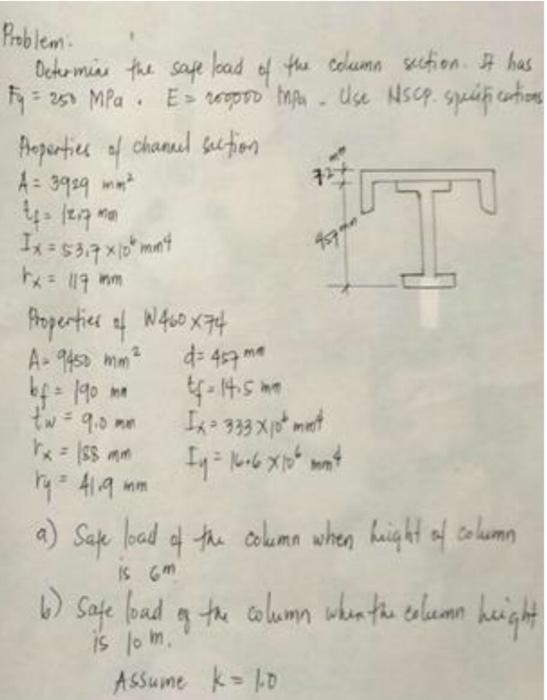 Problem:
Determine the safe load of the column section. It has
Fy = 250 MPa. E = 200000 MPa. Use NSCP. specifications
Properties of channel section
A = 3929 mm²
tf = 12.7 mm
Ix = 53.7 x 10⁶ mm⁴
rx = 117 mm
7.2 mm
457 mm
Properties of W460 x 74
A = 9450 mm² d = 457 mm
bf = 190 mm tf = 14.5 mm
tw = 9.0 mm Ix = 333 x 10⁶ mm⁴
rx = 188 mm Iy = 16.6 x 10⁶ mm⁴
ry = 41.9 mm
a) Safe load of the column when height of column
is 6m
b) Safe load of the column when the column height
is 10 m.
Assume k = 1.0